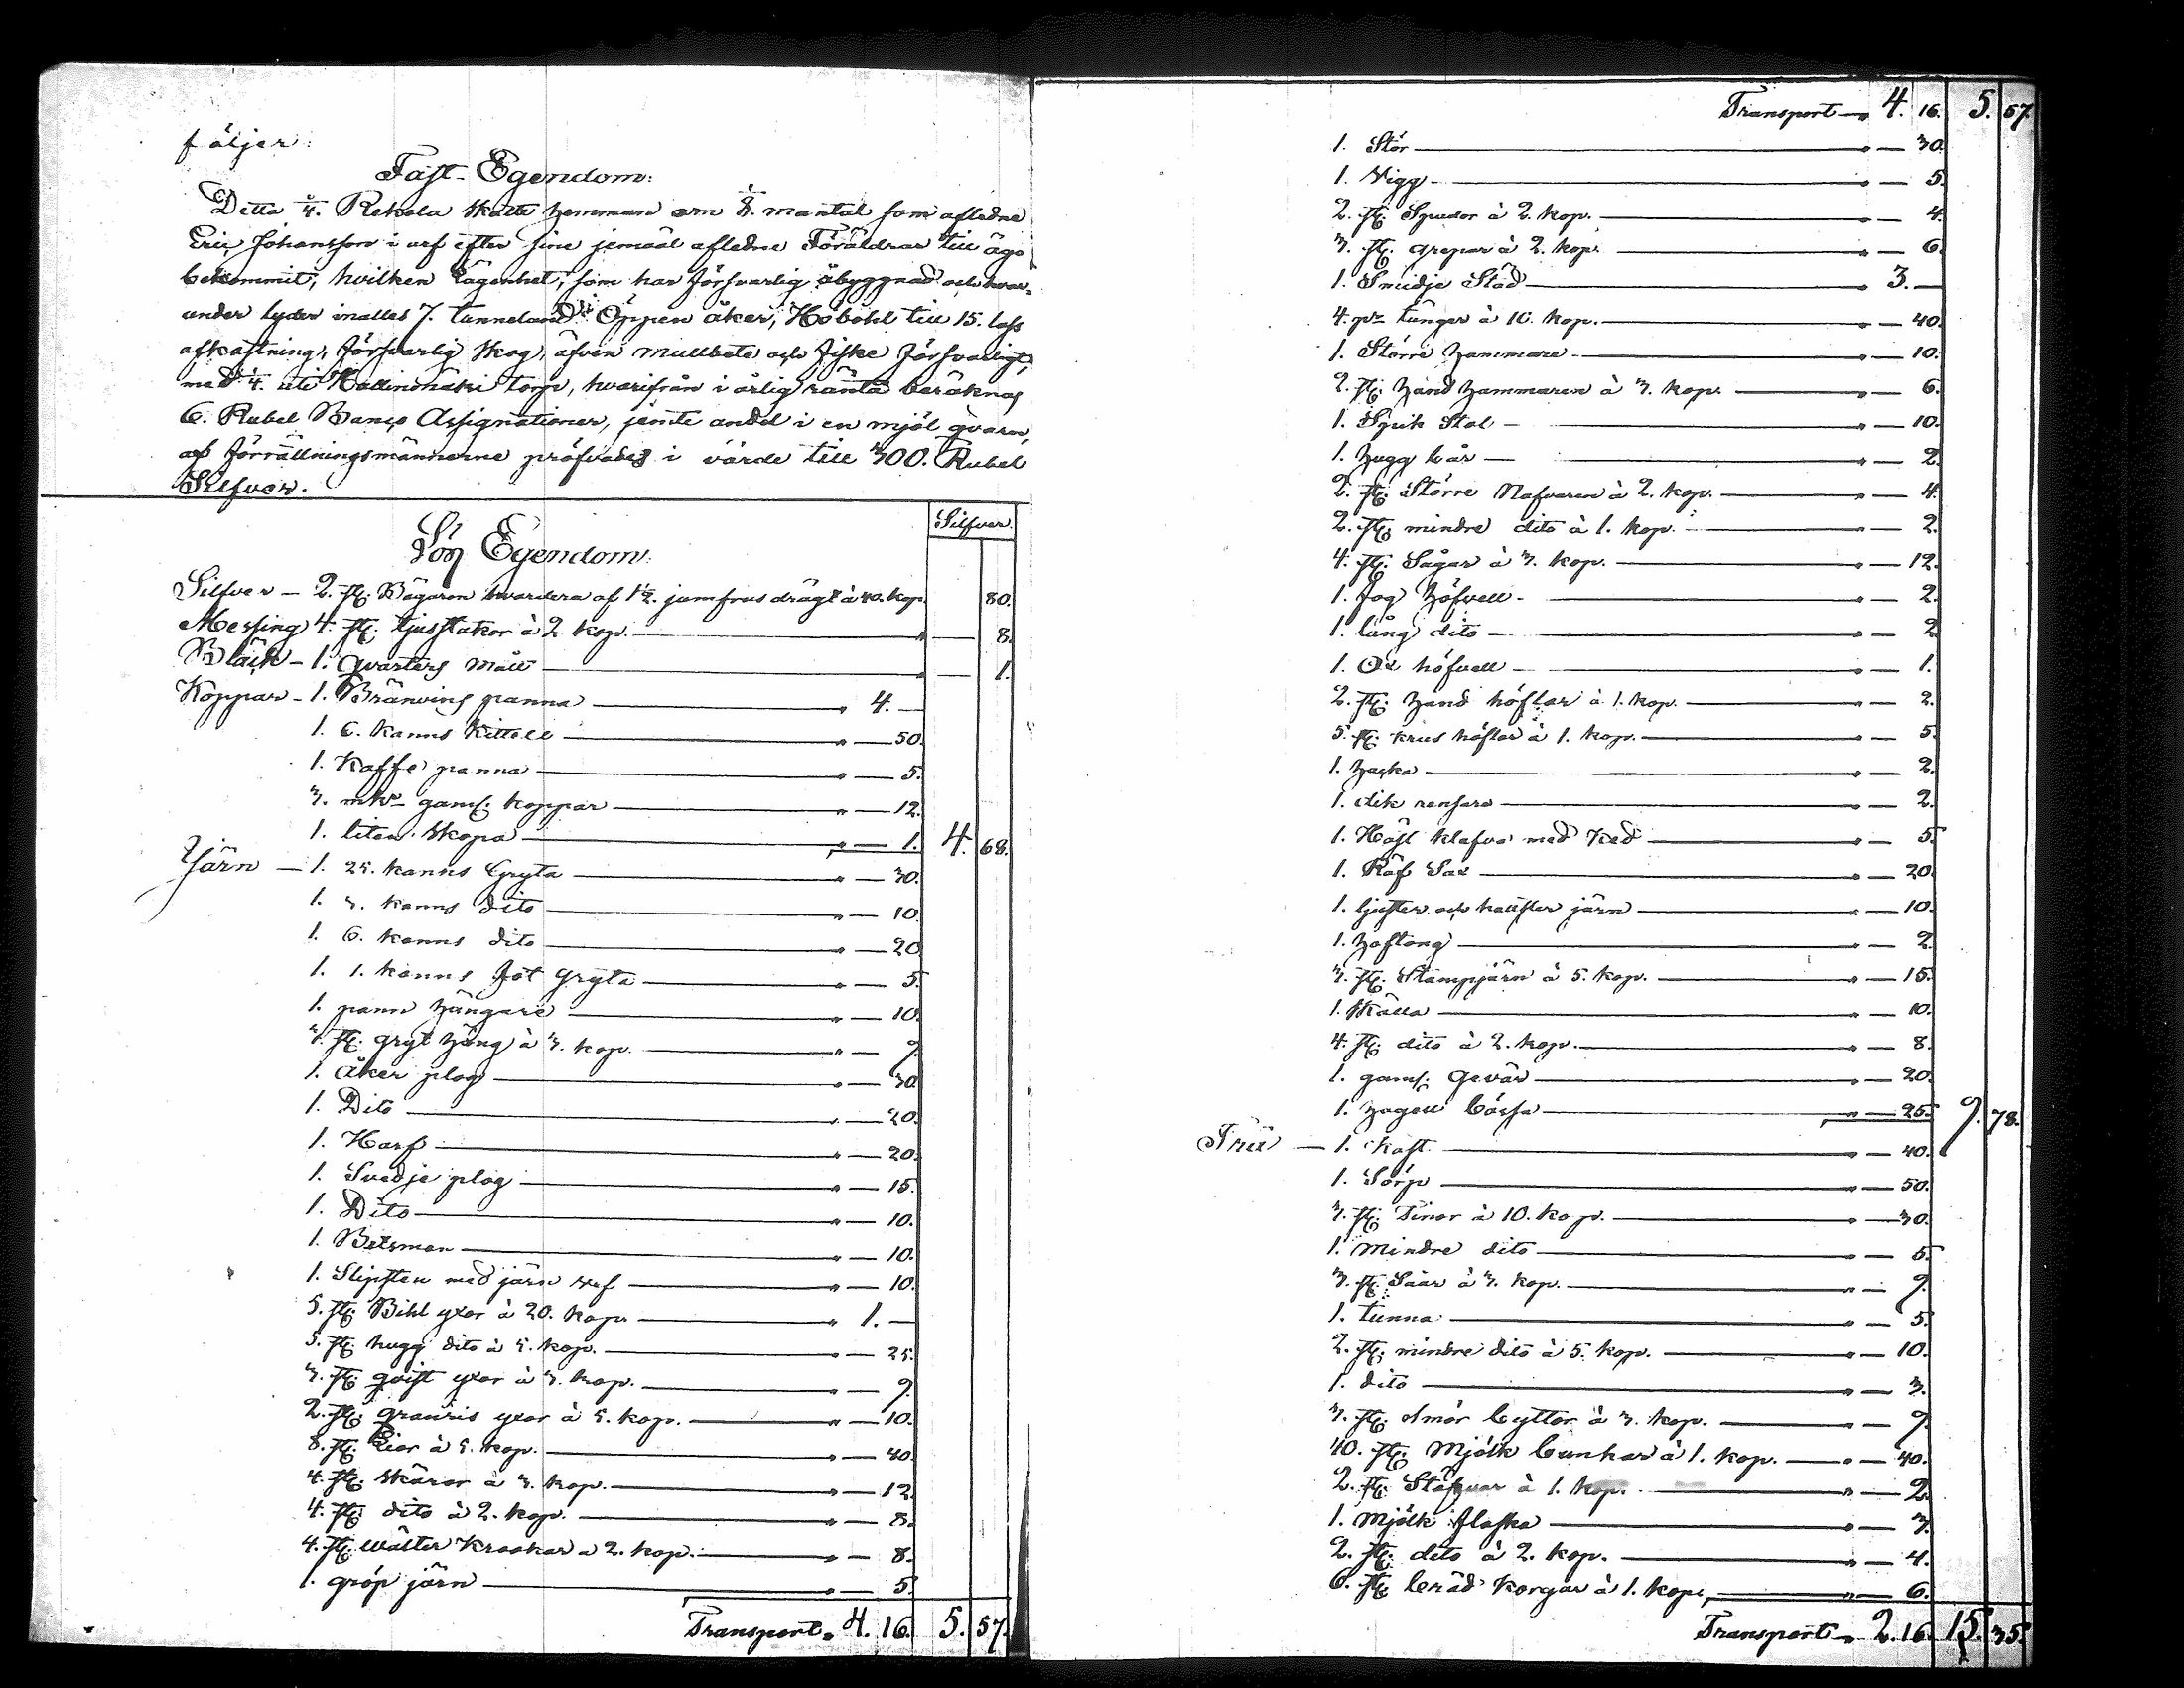 följer:
Fast Egendom:
Detta 4. Rekola Skatte hemman om 1/8. mantal som aflidne
Eric Johansson i arf efter sine jemväl aflidne Föräldrar till ägo
bekommit, hvilken Lägenhet, som har försvarlig åbyggnad och hvar-
under lyder inalles 7. tunneland Öppen åker, Höbohl till 15. lass
afkastning, försvarlig skog, äfven mullbete och fiske försvarligt,
med 1/4. uti torp, hvarifrån i årlig ränta beräknas
6. Rubel Banco Assignationer, jemte andel i en mjöl qvarn,
af förrättningsmännerne pröfvades i värde till 300. Rubel
Silfver.
Silfver.
Lös Egendom:
Silfver – 2. st. Bägaren hvardera af 1 1/2. jumfrus drägt à 40. kop. 80.
Messing 4. st. ljusstakar à 2 kop. — 8.
Bläck – 1. Qvarters mått — 1.
Koppar – 1. Bränvins panna " 4. —
1. 6. kanns kittell " — 50.
1. Kaffe panna " — 5.
3. mkr gaml. koppar " — 12.
1. liten skopa " — 1. 4. 68.
Järn – 1. 25. kanns Gryta " — 30.
1. 3. kanns dito " — 10.
1. 6. kanns dito " — 20.
1. 1. kanns fot gryta " — 5.
1. pann hängare " — 10.
3. st. gryt häng à 3. kop. " — 9.
1. åker plog " — 30.
1. Dito " — 20.
1. Harf " — 20.
1. Svedje plog " — 15.
1. Dito " — 10.
1. Betsman " — 10.
1. Slipsten med järn vef " — 10.
5. st. Bihl yxor à 20. kop. " 1. —
5. st. hugg dito à 5. kop. " — 25.
3. st. qvist yxor à 3. kop. " — 9.
2. st. granris yxor à 5. kop. " — 10.
8. st. Liar à 5. kop. " — 40.
4. st. skäror à 3. kop. " — 12.
4. st. dito à 2. kop. " — 8.
4. st. wälter Krookar a 2. kop. " — 8.
1. gröp järn " — 5.
Transport " 4. 16. 5. 57.
Transport " 4. 16. 5. 57.
1. Stör " — 30.
1. Vigg " — 5.
2. st. Spador à 2. kop. " — 4.
3. st. grepar à 2. kop. " — 6.
1. Smidje Städ " 3. —
4. pr tänger à 10. kop. " — 40.
1. Större hammare " — 10.
2. st. hand hammaren à 3. kop. " — 6.
1. Spik Stål " — 10.
1. hugg bår " — 2.
2. st. Större Nafvaren à 2. kop. " — 4.
2. st. mindre dito à 1. kop. " — 2.
4. st. Sågar à 3. kop. " — 12.
1. fog höfvell " — 2.
1. lång dito " — 2.
1. Ox höfvell " — 1.
2. st. hand höflar à 1. kop. " — 2.
5. st. krus höflar à 1. kop. " — 5.
1. hacka " — 2.
1. dik rensare " — 2.
1. Häst klafva med ked " — 5.
1. Räf Sax " — 20.
1. ljuster och halster järn " — 10.
1. hoftång " — 2.
3. st. Stampjärn à 5. kop. " — 15.
1. Skälla " — 10.
4. st. dito à 2. kop. " — 8.
1. gaml. Gevär " — 20.
1. hagell bössa " — 25. 9. 78.
Trä – 1. Kast " — 40.
1. Sörp " — 50.
3. st. Tinor à 10. kop. " — 30.
1. mindre dito " — 5.
3. st. Såar à 3. kop. " — 9.
1. tunna " — 5.
2. st. mindre dito à 5. kop. " — 10.
1. dito " — 3.
3. st. Smör byttor à 3. kop. " — 9.
40. st. Mjölk bunkar à 1. kop. " — 40.
2. st. Stäfvor à 1. kop. " — 2.
1. Mjölk flaska " — 3.
2. st. dito à 2. kop. " — 4.
6. st. bröd Korgar à 1. kop. " — 6.
Transport " 2. 16. 15. 35.